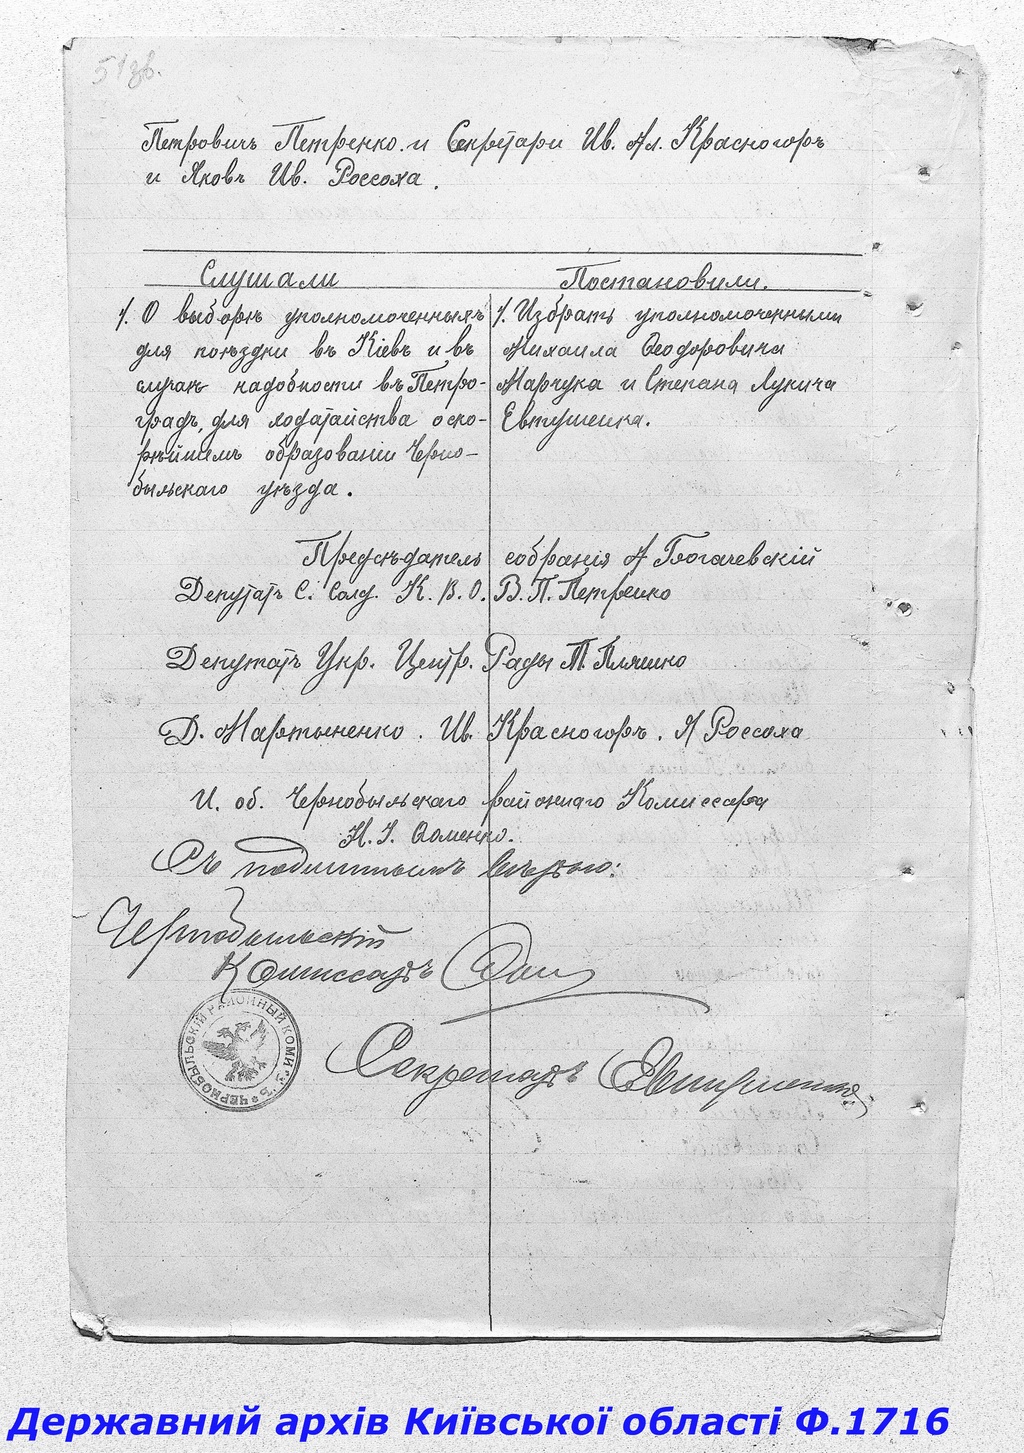 51зв.
Петровичъ Петренко. и Секретари Ив. Ал. Красногоръ
и Яковъ Ив. Россоха.
Слушали
1. О выборѣ уполномоченныхъ
для поѣздки въ Кіевъ и въ
случаѣ надобности въ Петро-
градъ, для ходатайства о ско-
рѣйшемъ образованіи Черно-
быльскаго уѣзда.
Постановили.
1. Избрать уполномоченными
Михаила Ѳеодоровича
Марчука и Степана Лукича
Евтушенка.
Предсѣдатель собранія А Богачевскій
Депутатъ С. Солд. К. В. О. В. П. Петренко
Депутатъ Укр. Центр. Рады М. Пляшко
Д. Мартыненко. Ив. Красногоръ. Я Россоха
И. об. Чернобыльскаго районнаго Комиссара
Н. І. Ѳоменко.
Съ подлиннымъ вѣрно:
Чернобыльскій
Комиссаръ
Секретарь Евтушенко
ЧЕРНОБЫЛЬСКІЙ РАЙОННЫЙ КОМИС-Ъ
Державний архів Київської області Ф.1716